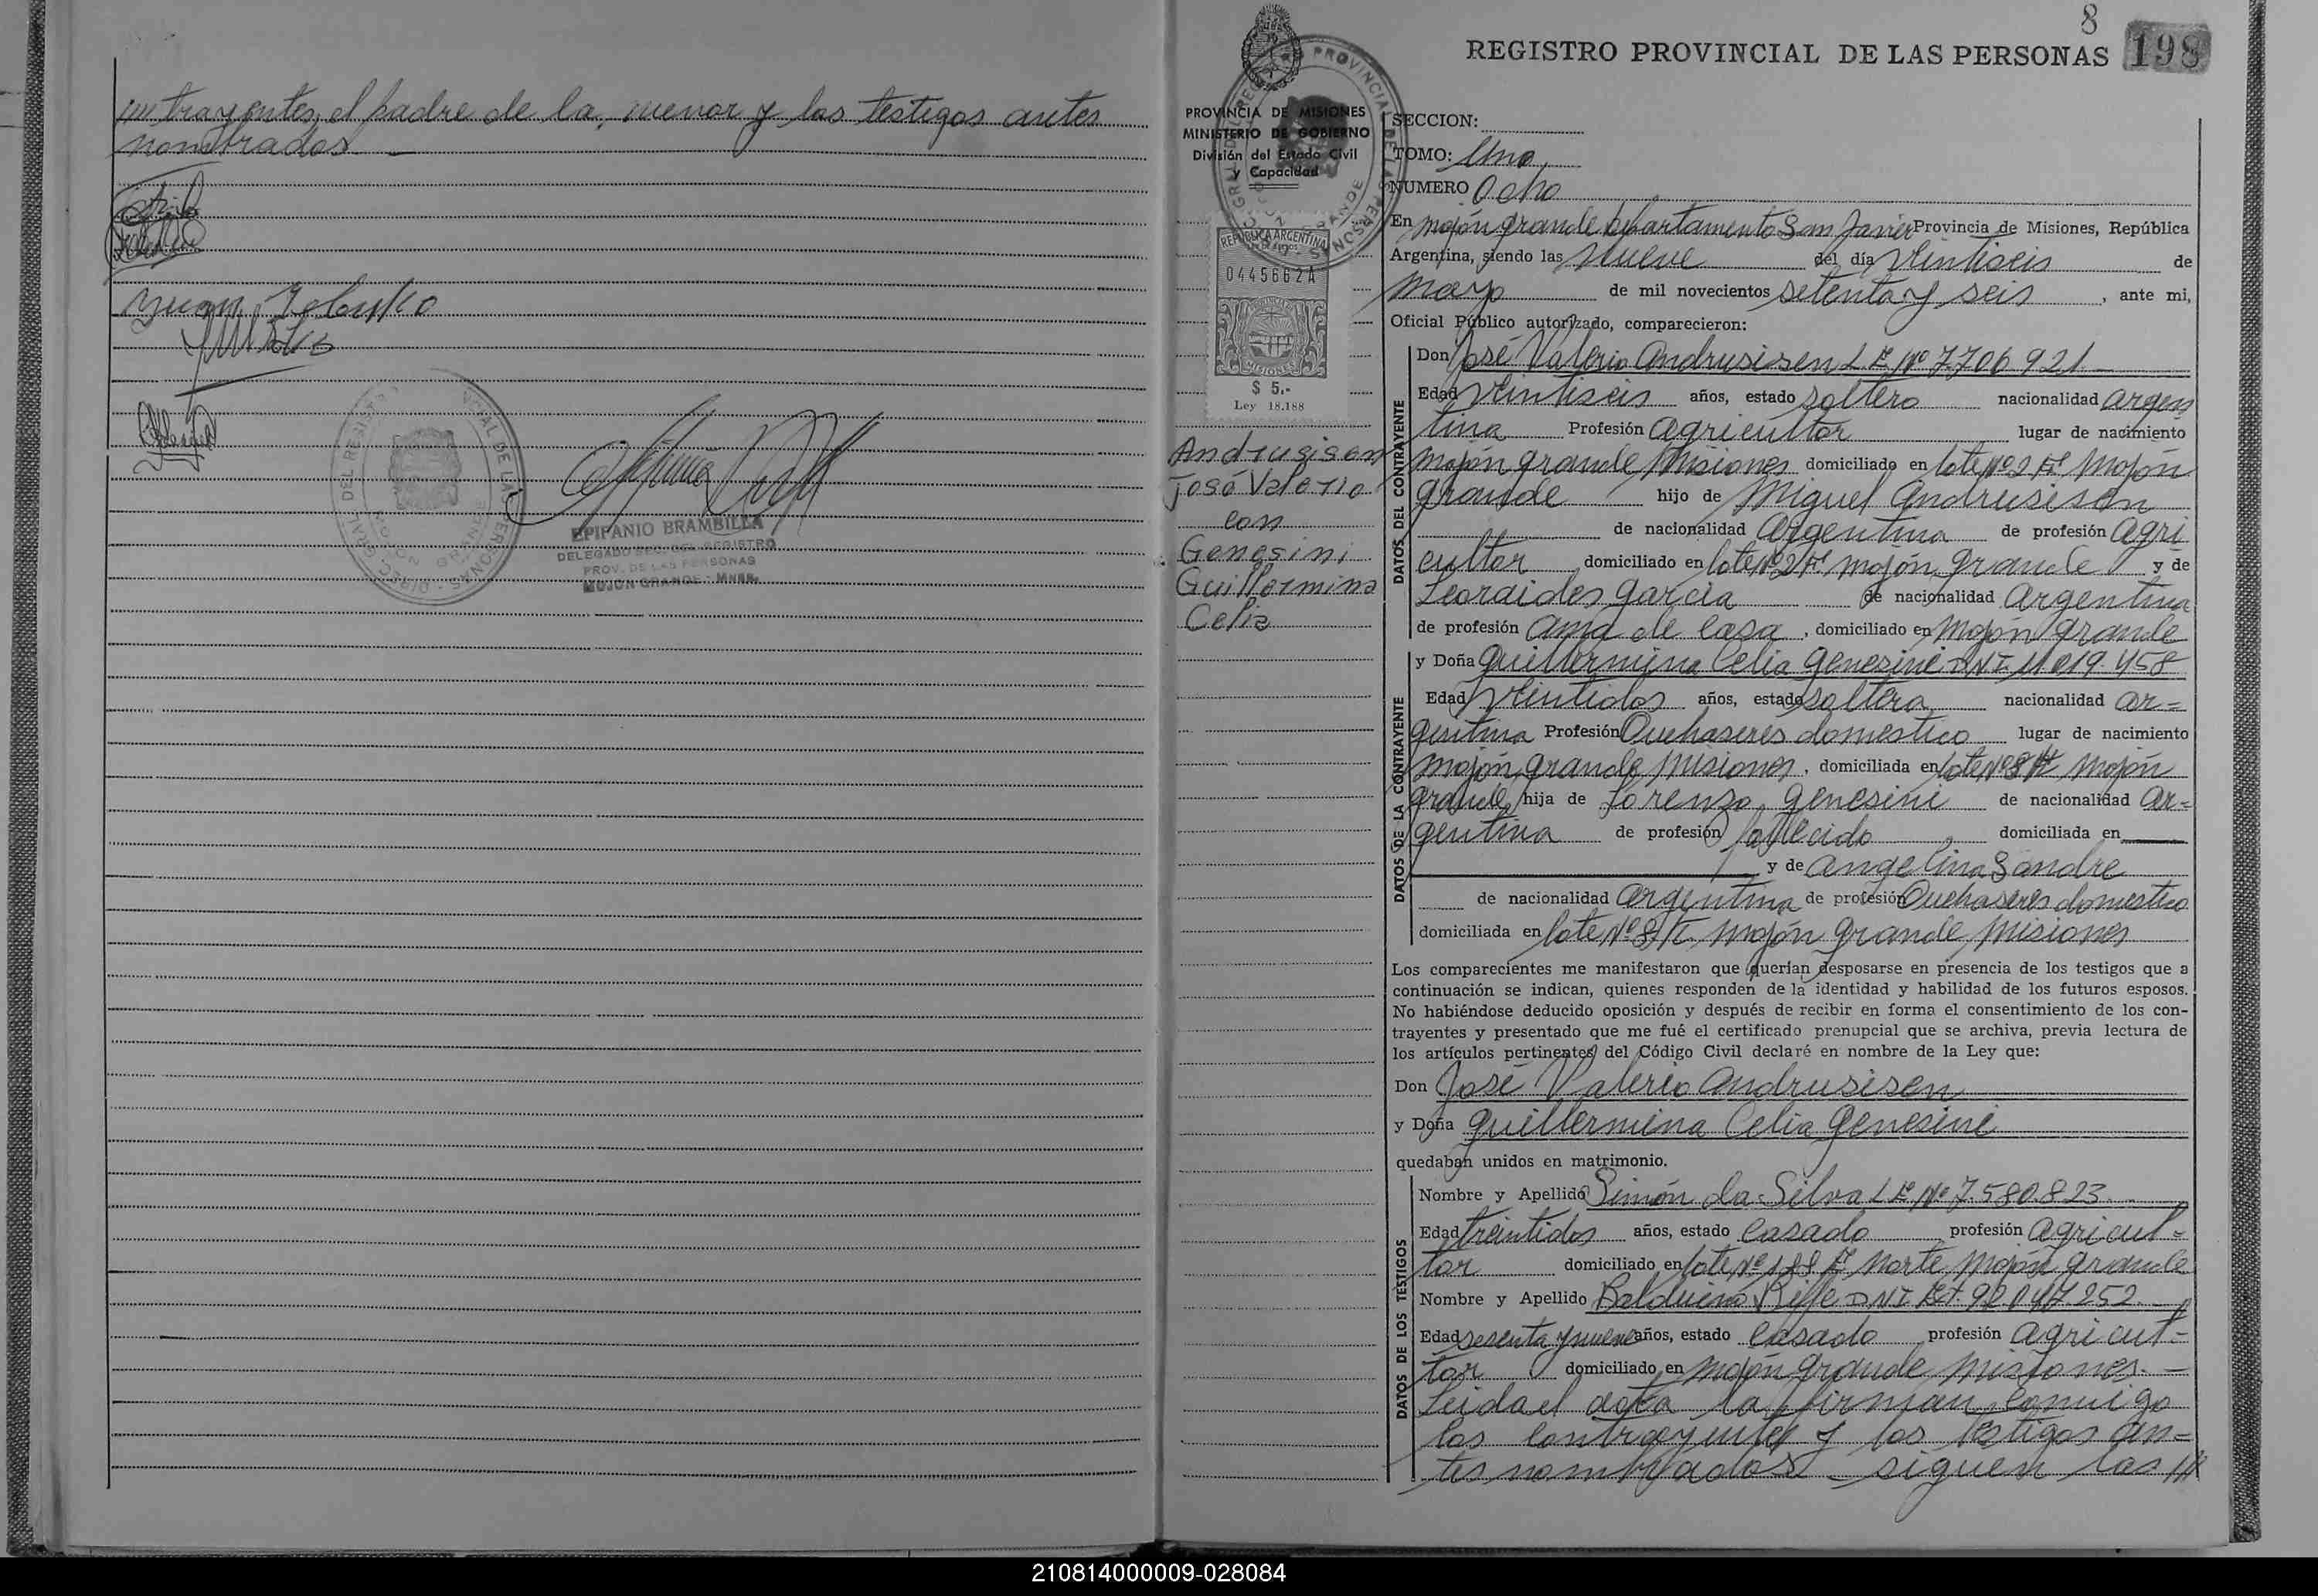 //// trayentes, el padre de la, menor y los testigos antes
nombrados –
Juan Zebusko
EPIFANIO BRAMBILLA
DELEGADO SEC. DEL REGISTRO
PROV. DE LAS PERSONAS
MOJON GRANDE - MNES.
8
REGISTRO PROVINCIAL DE LAS PERSONAS 198
PROVINCIA DE MISIONES
MINISTERIO DE GOBIERNO
División del Estado Civil
y Capacidad
REPUBLICA ARGENTINA
0445662A
MISIONES
$ 5.-
Ley 18.188
Andrusisen
José Valerio
con
Genesini
Guillermina
Celia
SECCION:
TOMO: Uno
NUMERO Ocho
En Mojón Grande Departamento San Javier Provincia de Misiones, República
Argentina, siendo las nueve del día veintiseis de
Mayo de mil novecientos setenta y seis, ante mi,
Oficial Público autorizado, comparecieron:
DATOS DEL CONTRAYENTE
Don José Valerio Andrusisen L.E. Nº 7.706.921.–
Edad veintiseis años, estado soltero nacionalidad argen
tina Profesión Agricultor lugar de nacimiento
Mojón Grande Misiones domiciliado en lote Nº 2 Fl Mojón
Grande hijo de Miguel Andrusisen
de nacionalidad Argentina de profesión Agri
cultor domiciliado en lote Nº 2 Fl. Mojón Grande y de
Leoraides Garcia de nacionalidad Argentina
de profesión ama de casa, domiciliado en Mojón Grande
DATOS DE LA CONTRAYENTE
y Doña Guillermina Celia Genesini DNI. 11.019.458
Edad veintidos años, estado soltera nacionalidad Ar=
gentina Profesión Quehaseres domestico lugar de nacimiento
Mojón Grande Misiones, domiciliada en lote Nº 8 Mojón
Grande hija de Lorenzo Genesini de nacionalidad Ar=
gentina de profesión fallecido domiciliada en ——
y de Angelina Sandre
de nacionalidad Argentina de profesión Quehaseres domestico
domiciliada en lote Nº 8 Mojón Grande Misiones
Los comparecientes me manifestaron que querían desposarse en presencia de los testigos que a
continuación se indican, quienes responden de la identidad y habilidad de los futuros esposos.
No habiéndose deducido oposición y después de recibir en forma el consentimiento de los con-
trayentes y presentado que me fué el certificado prenupcial que se archiva, previa lectura de
los artículos pertinentes del Código Civil declaré en nombre de la Ley que:
Don José Valerio Andrusisen
y Doña Guillermina Celia Genesini
quedaban unidos en matrimonio.
DATOS DE LOS TESTIGOS
Nombre y Apellido Simón da Silva L.E. Nº 7.580.823.
Edad treintidos años, estado casado profesión agricul-
tor domiciliado en lote Nº Norte Mojón Grande
Nombre y Apellido Balduino Riffe DNI Ext. 92.047.252.
Edad sesenta y nueve años, estado casado profesión agricul-
tor domiciliado en Mojón Grande Misiones.–
Leida el acta la firman conmigo
los contrayentes y los testigos an=
tes nombrados – siguen las ///
210814000009-028084